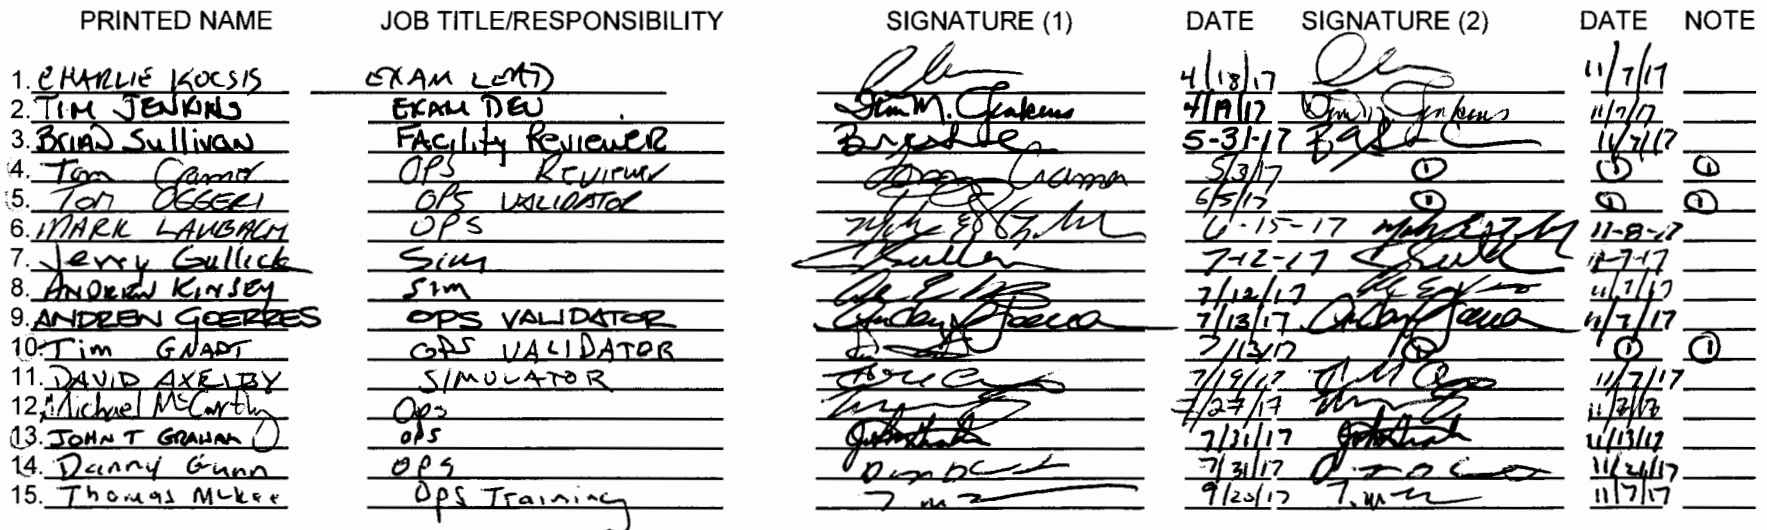 PRINTED NAME JOB TITLE/RESPONSIBILITY SIGNATURE (1) DATE SIGNATURE (2) DATE NOTE
1. CHARLIE KOCSIS EXAM LEAD 4/18/17 11/7/17
2. TIM JENKINS EXAM DEV Tim M. Jenkins 4/19/17 Tim M. Jenkins 11/7/17
3. BRIAN Sullivan FACility Reviewer 5-31-17 11/7/17
4. Tom OPS REVIEWER 5/3/17 ① ① ①
5. TOM OGGERI OPS VALIDATOR 6/5/17 ① ① ①
6. MARK LAUBACH OPS 6-15-17 11-8-17
7. Jerry Gullick Sim 7-12-17 11-7-17
8. ANDREW KINSEY SIM 7/12/17 11/7/17
9. ANDREN GOERRES OPS VALIDATOR 7/13/17 11/7/17
10. Tim GNADT OPS VALIDATOR 7/13/17 ① ① ①
11. DAVID AXELBY SIMULATOR 7/19/17 11/7/17
12. Michael McCarthy Ops 7/27/17
13. JOHN T GRAHAM OPS 7/31/17 11/13/17
14. Danny Gunn OPS 7/31/17 11/21/17
15. Thomas McKee Ops Training 9/20/17 11/7/17